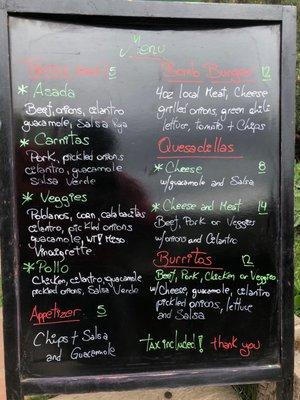 Menu
5
* Asada
Beef, onions, cilantro
guacamole, Salsa Roja
* Carnitas
Pork, pickled onions
cilantro, guacamole
Salsa Verde
* Veggies
Poblanos, corn, calabacitas
cilantro, pickled onions
guacamole, W/
Vinaigrette
* Pollo
Chicken, cilantro, guacamole
pickled onions, Salsa Verde
Appetizer 5
Chips + Salsa
and Guacamole
Bomb Burger 12
4oz local Meat, Cheese
grilled onions, green chili
lettuce, tomato + Chips
Quesadillas
* Cheese 8
w/guacamole and Salsa
* Cheese and Meat 14
Beef, Pork or Veggies
w/onions and Cilantro
Burritos 12
Beef, Pork, Chicken or Veggies
w/Cheese, guacamole, cilantro
pickled onions, lettuce
and Salsa
tax included! thank you